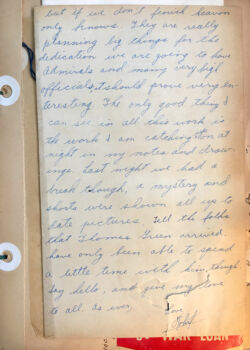 but if we don't finish heaven
only knows. They are really
planning big things for the
dedication we are going to have
Admirals and many very high
officials, it should prove very in-
teresting. The only good thing I
can see in all this work is
the work I am catching on at
night in my notes and draw-
ings. Last night we had a
break though, a mystery and
shorts were shown all up to
date pictures. Tell the folks
that Thomas Green arrived.
have only been able to spend
a little time with him, though.
Say hello, and give my love
to all. As ever,
Love
WAR LOAN